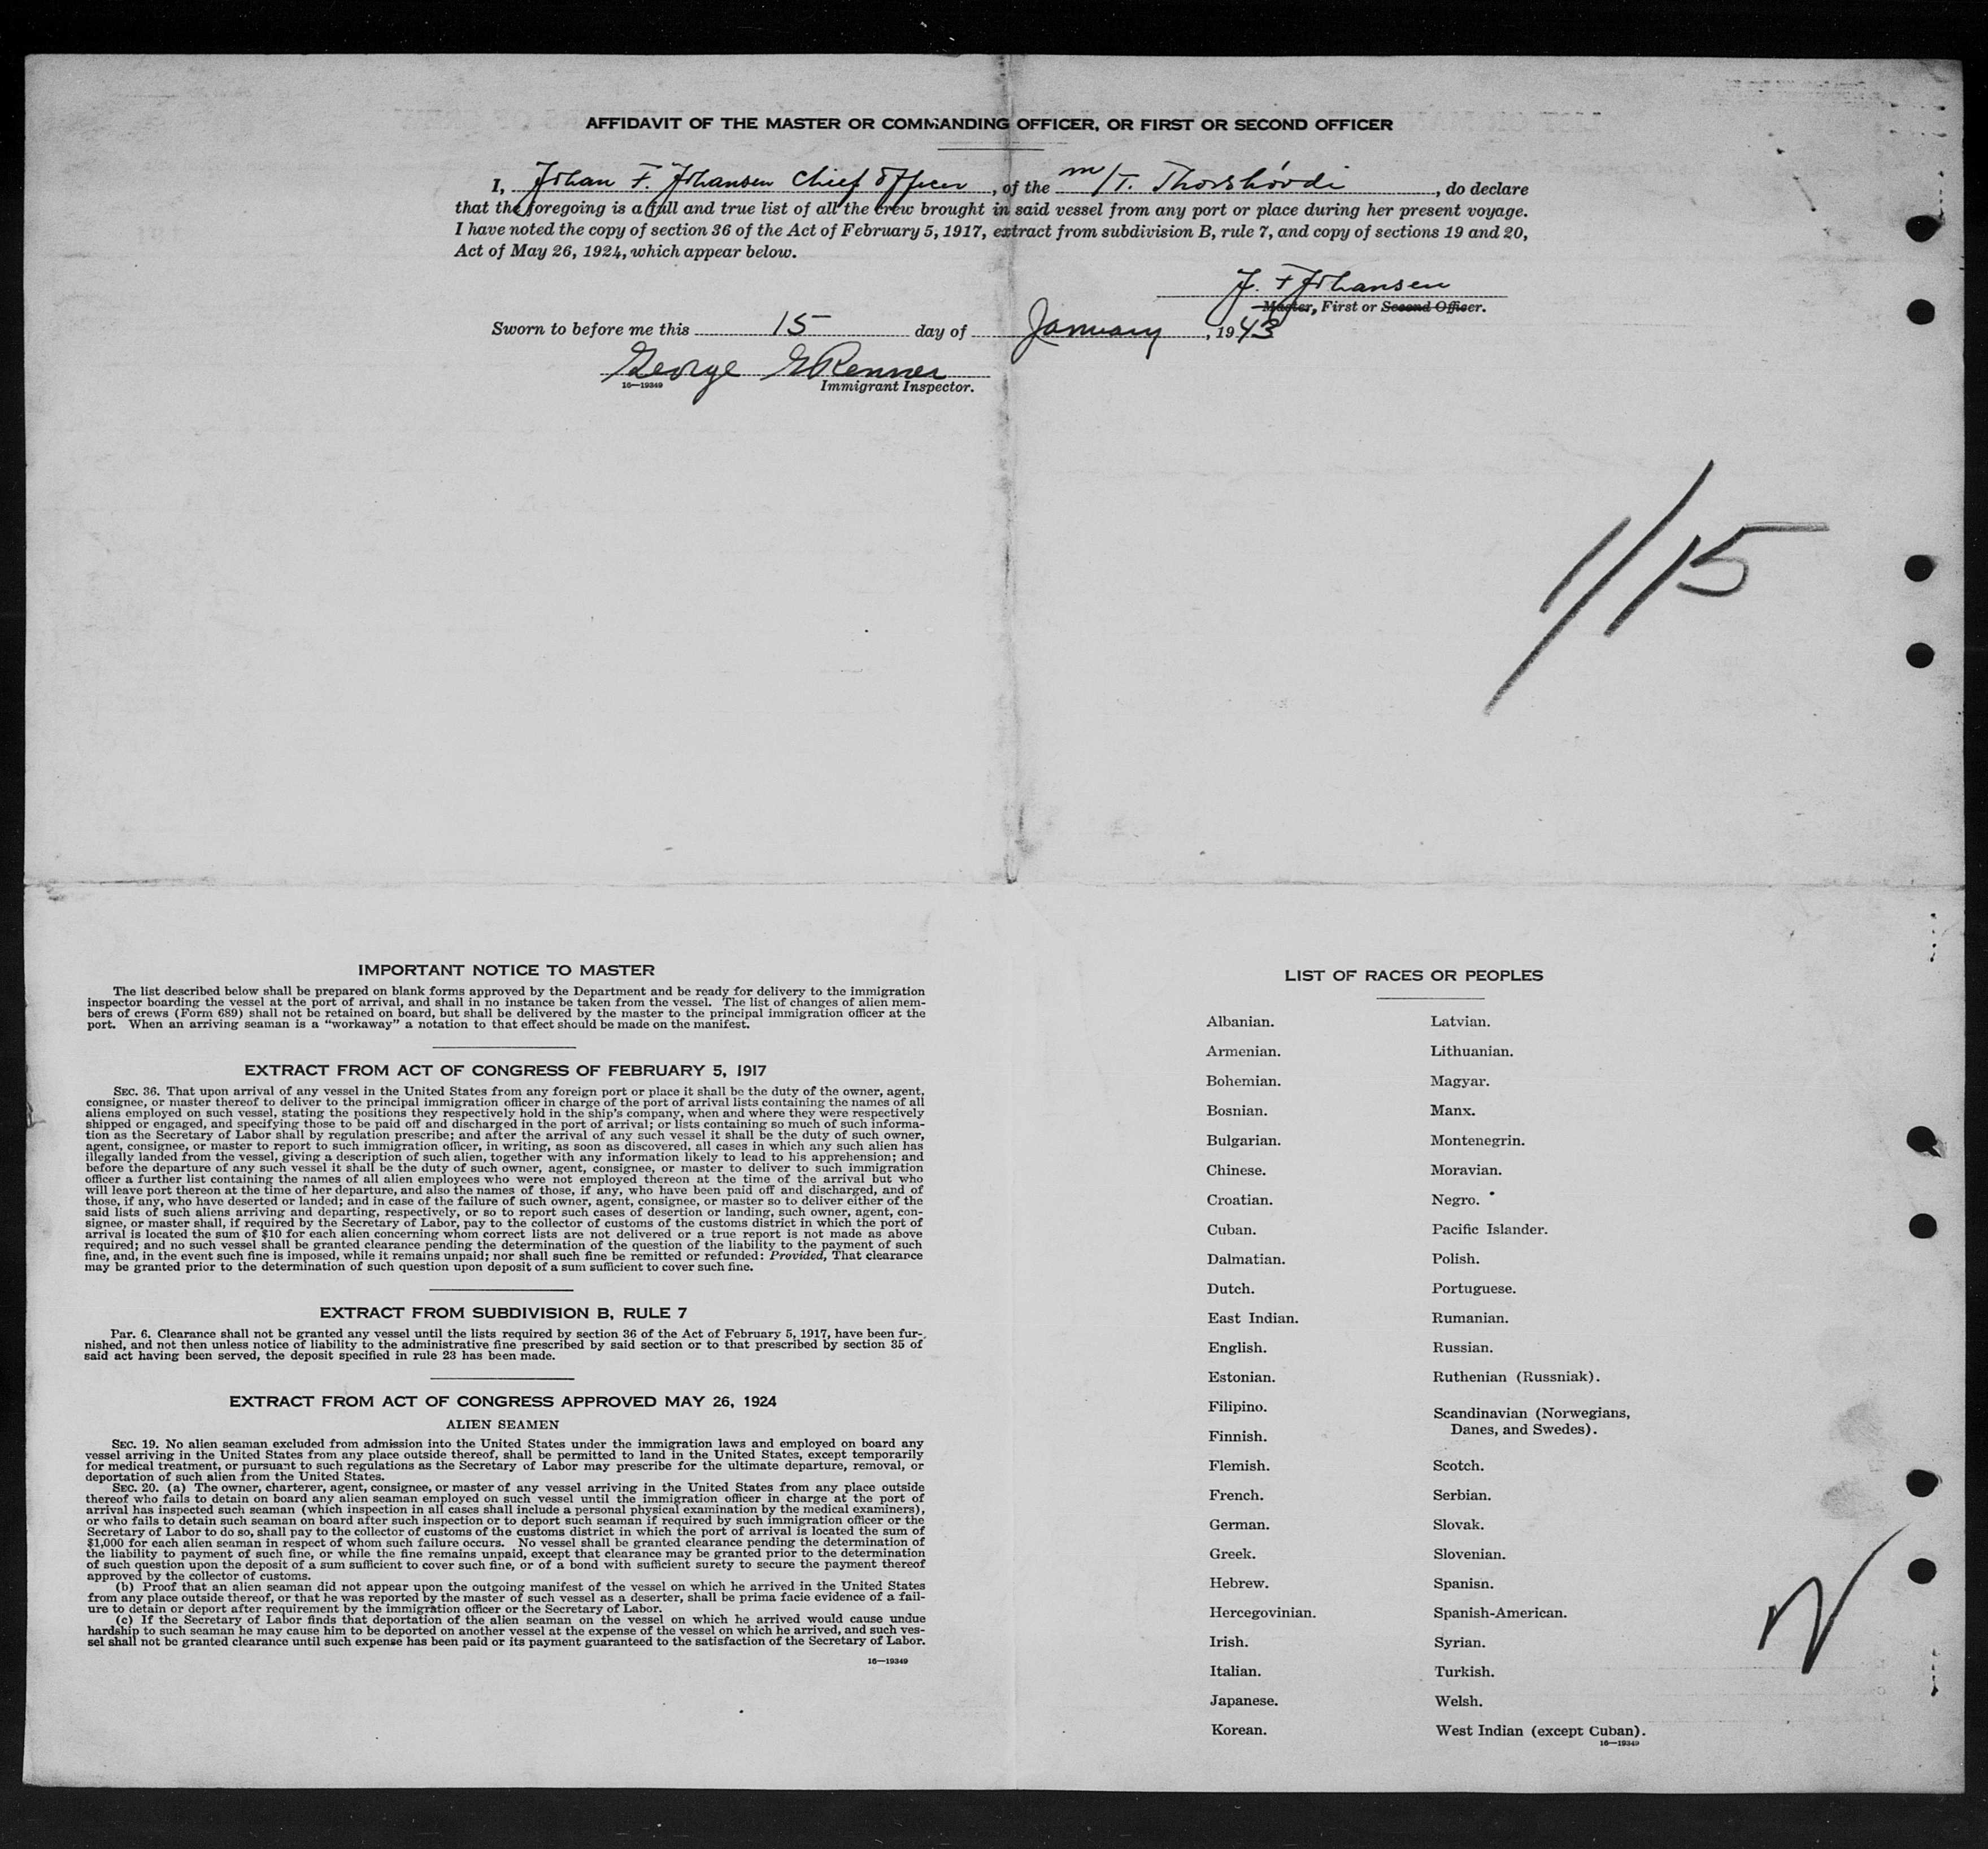 AFFIDAVIT OF THE MASTER OR COMMANDING OFFICER, OR FIRST OR SECOND OFFICER
I, Johan F. Johansen Chief Officer, of the m/T. Thorshövdi, do declare
that the foregoing is a full and true list of all the crew brought in said vessel from any port or place during her present voyage.
I have noted the copy of section 36 of the Act of February 5, 1917, extract from subdivision B, rule 7, and copy of sections 19 and 20,
Act of May 26, 1924, which appear below.
J. F Johansen
Master, First or Second Officer.
Sworn to before me this 15 day of January, 1943
George Renner
16—19349 Immigrant Inspector.
1/15
IMPORTANT NOTICE TO MASTER
The list described below shall be prepared on blank forms approved by the Department and be ready for delivery to the immigration
inspector boarding the vessel at the port of arrival, and shall in no instance be taken from the vessel. The list of changes of alien mem-
bers of crews (Form 689) shall not be retained on board, but shall be delivered by the master to the principal immigration officer at the
port. When an arriving seaman is a "workaway" a notation to that effect should be made on the manifest.
EXTRACT FROM ACT OF CONGRESS OF FEBRUARY 5, 1917
SEC. 36. That upon arrival of any vessel in the United States from any foreign port or place it shall be the duty of the owner, agent,
consignee, or master thereof to deliver to the principal immigration officer in charge of the port of arrival lists containing the names of all
aliens employed on such vessel, stating the positions they respectively hold in the ship's company, when and where they were respectively
shipped or engaged, and specifying those to be paid off and discharged in the port of arrival; or lists containing so much of such informa-
tion as the Secretary of Labor shall by regulation prescribe; and after the arrival of any such vessel it shall be the duty of such owner,
agent, consignee, or master to report to such immigration officer, in writing, as soon as discovered, all cases in which any such alien has
illegally landed from the vessel, giving a description of such alien, together with any information likely to lead to his apprehension; and
before the departure of any such vessel it shall be the duty of such owner, agent, consignee, or master to deliver to such immigration
officer a further list containing the names of all alien employees who were not employed thereon at the time of the arrival but who
will leave port thereon at the time of her departure, and also the names of those, if any, who have been paid off and discharged, and of
those, if any, who have deserted or landed; and in case of the failure of such owner, agent, consignee, or master so to deliver either of the
said lists of such aliens arriving and departing, respectively, or so to report such cases of desertion or landing, such owner, agent, con-
signee, or master shall, if required by the Secretary of Labor, pay to the collector of customs of the customs district in which the port of
arrival is located the sum of $10 for each alien concerning whom correct lists are not delivered or a true report is not made as above
required; and no such vessel shall be granted clearance pending the determination of the question of the liability to the payment of such
fine, and, in the event such fine is imposed, while it remains unpaid; nor shall such fine be remitted or refunded: Provided, That clearance
may be granted prior to the determination of such question upon deposit of a sum sufficient to cover such fine.
EXTRACT FROM SUBDIVISION B, RULE 7
Par. 6. Clearance shall not be granted any vessel until the lists required by section 36 of the Act of February 5, 1917, have been fur-
nished, and not then unless notice of liability to the administrative fine prescribed by said section or to that prescribed by section 35 of
said act having been served, the deposit specified in rule 23 has been made.
EXTRACT FROM ACT OF CONGRESS APPROVED MAY 26, 1924
ALIEN SEAMEN
SEC. 19. No alien seaman excluded from admission into the United States under the immigration laws and employed on board any
vessel arriving in the United States from any place outside thereof, shall be permitted to land in the United States, except temporarily
for medical treatment, or pursuant to such regulations as the Secretary of Labor may prescribe for the ultimate departure, removal, or
deportation of such alien from the United States.
SEC. 20. (a) The owner, charterer, agent, consignee, or master of any vessel arriving in the United States from any place outside
thereof who fails to detain on board any alien seaman employed on such vessel until the immigration officer in charge at the port of
arrival has inspected such seaman (which inspection in all cases shall include a personal physical examination by the medical examiners),
or who fails to detain such seaman on board after such inspection or to deport such seaman if required by such immigration officer or the
Secretary of Labor to do so, shall pay to the collector of customs of the customs district in which the port of arrival is located the sum of
$1,000 for each alien seaman in respect of whom such failure occurs. No vessel shall be granted clearance pending the determination of
the liability to payment of such fine, or while the fine remains unpaid, except that clearance may be granted prior to the determination
of such question upon the deposit of a sum sufficient to cover such fine, or of a bond with sufficient surety to secure the payment thereof
approved by the collector of customs.
(b) Proof that an alien seaman did not appear upon the outgoing manifest of the vessel on which he arrived in the United States
from any place outside thereof, or that he was reported by the master of such vessel as a deserter, shall be prima facie evidence of a fail-
ure to detain or deport after requirement by the immigration officer or the Secretary of Labor.
(c) If the Secretary of Labor finds that deportation of the alien seaman on the vessel on which he arrived would cause undue
hardship to such seaman he may cause him to be deported on another vessel at the expense of the vessel on which he arrived, and such ves-
sel shall not be granted clearance until such expense has been paid or its payment guaranteed to the satisfaction of the Secretary of Labor.
16—19349
LIST OF RACES OR PEOPLES
Albanian.
Armenian.
Bohemian.
Bosnian.
Bulgarian.
Chinese.
Croatian.
Cuban.
Dalmatian.
Dutch.
East Indian.
English.
Estonian.
Filipino.
Finnish.
Flemish.
French.
German.
Greek.
Hebrew.
Hercegovinian.
Irish.
Italian.
Japanese.
Korean.
Latvian.
Lithuanian.
Magyar.
Manx.
Montenegrin.
Moravian.
Negro.
Pacific Islander.
Polish.
Portuguese.
Rumanian.
Russian.
Ruthenian (Russniak).
Scandinavian (Norwegians,
Danes, and Swedes).
Scotch.
Serbian.
Slovak.
Slovenian.
Spanisn.
Spanish-American.
Syrian.
Turkish.
Welsh.
West Indian (except Cuban).
16—19349